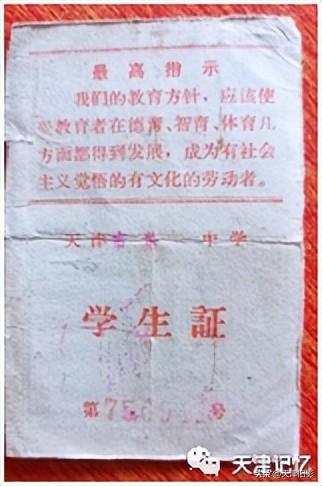 最高指示
我们的教育方针，应该使
受教育者在德育、智育、体育几
方面都得到发展，成为有社会
主义觉悟的有文化的劳动者。
天津 中学
学生証
第75 号
天津记忆
头条@天津旧影